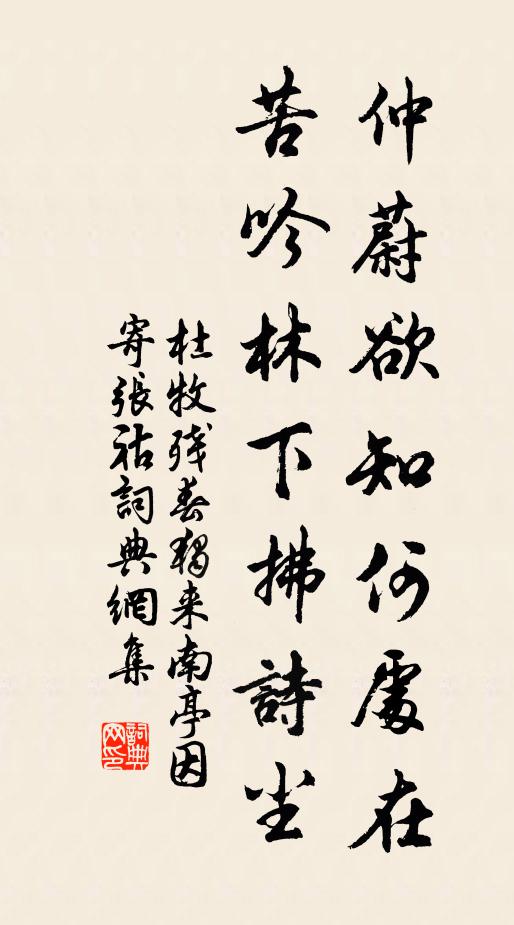 仲蔚欲知何處在
苦吟林下拂詩尘
杜牧残春獨来南亭因
寄張祜詞典網集
詞典网印